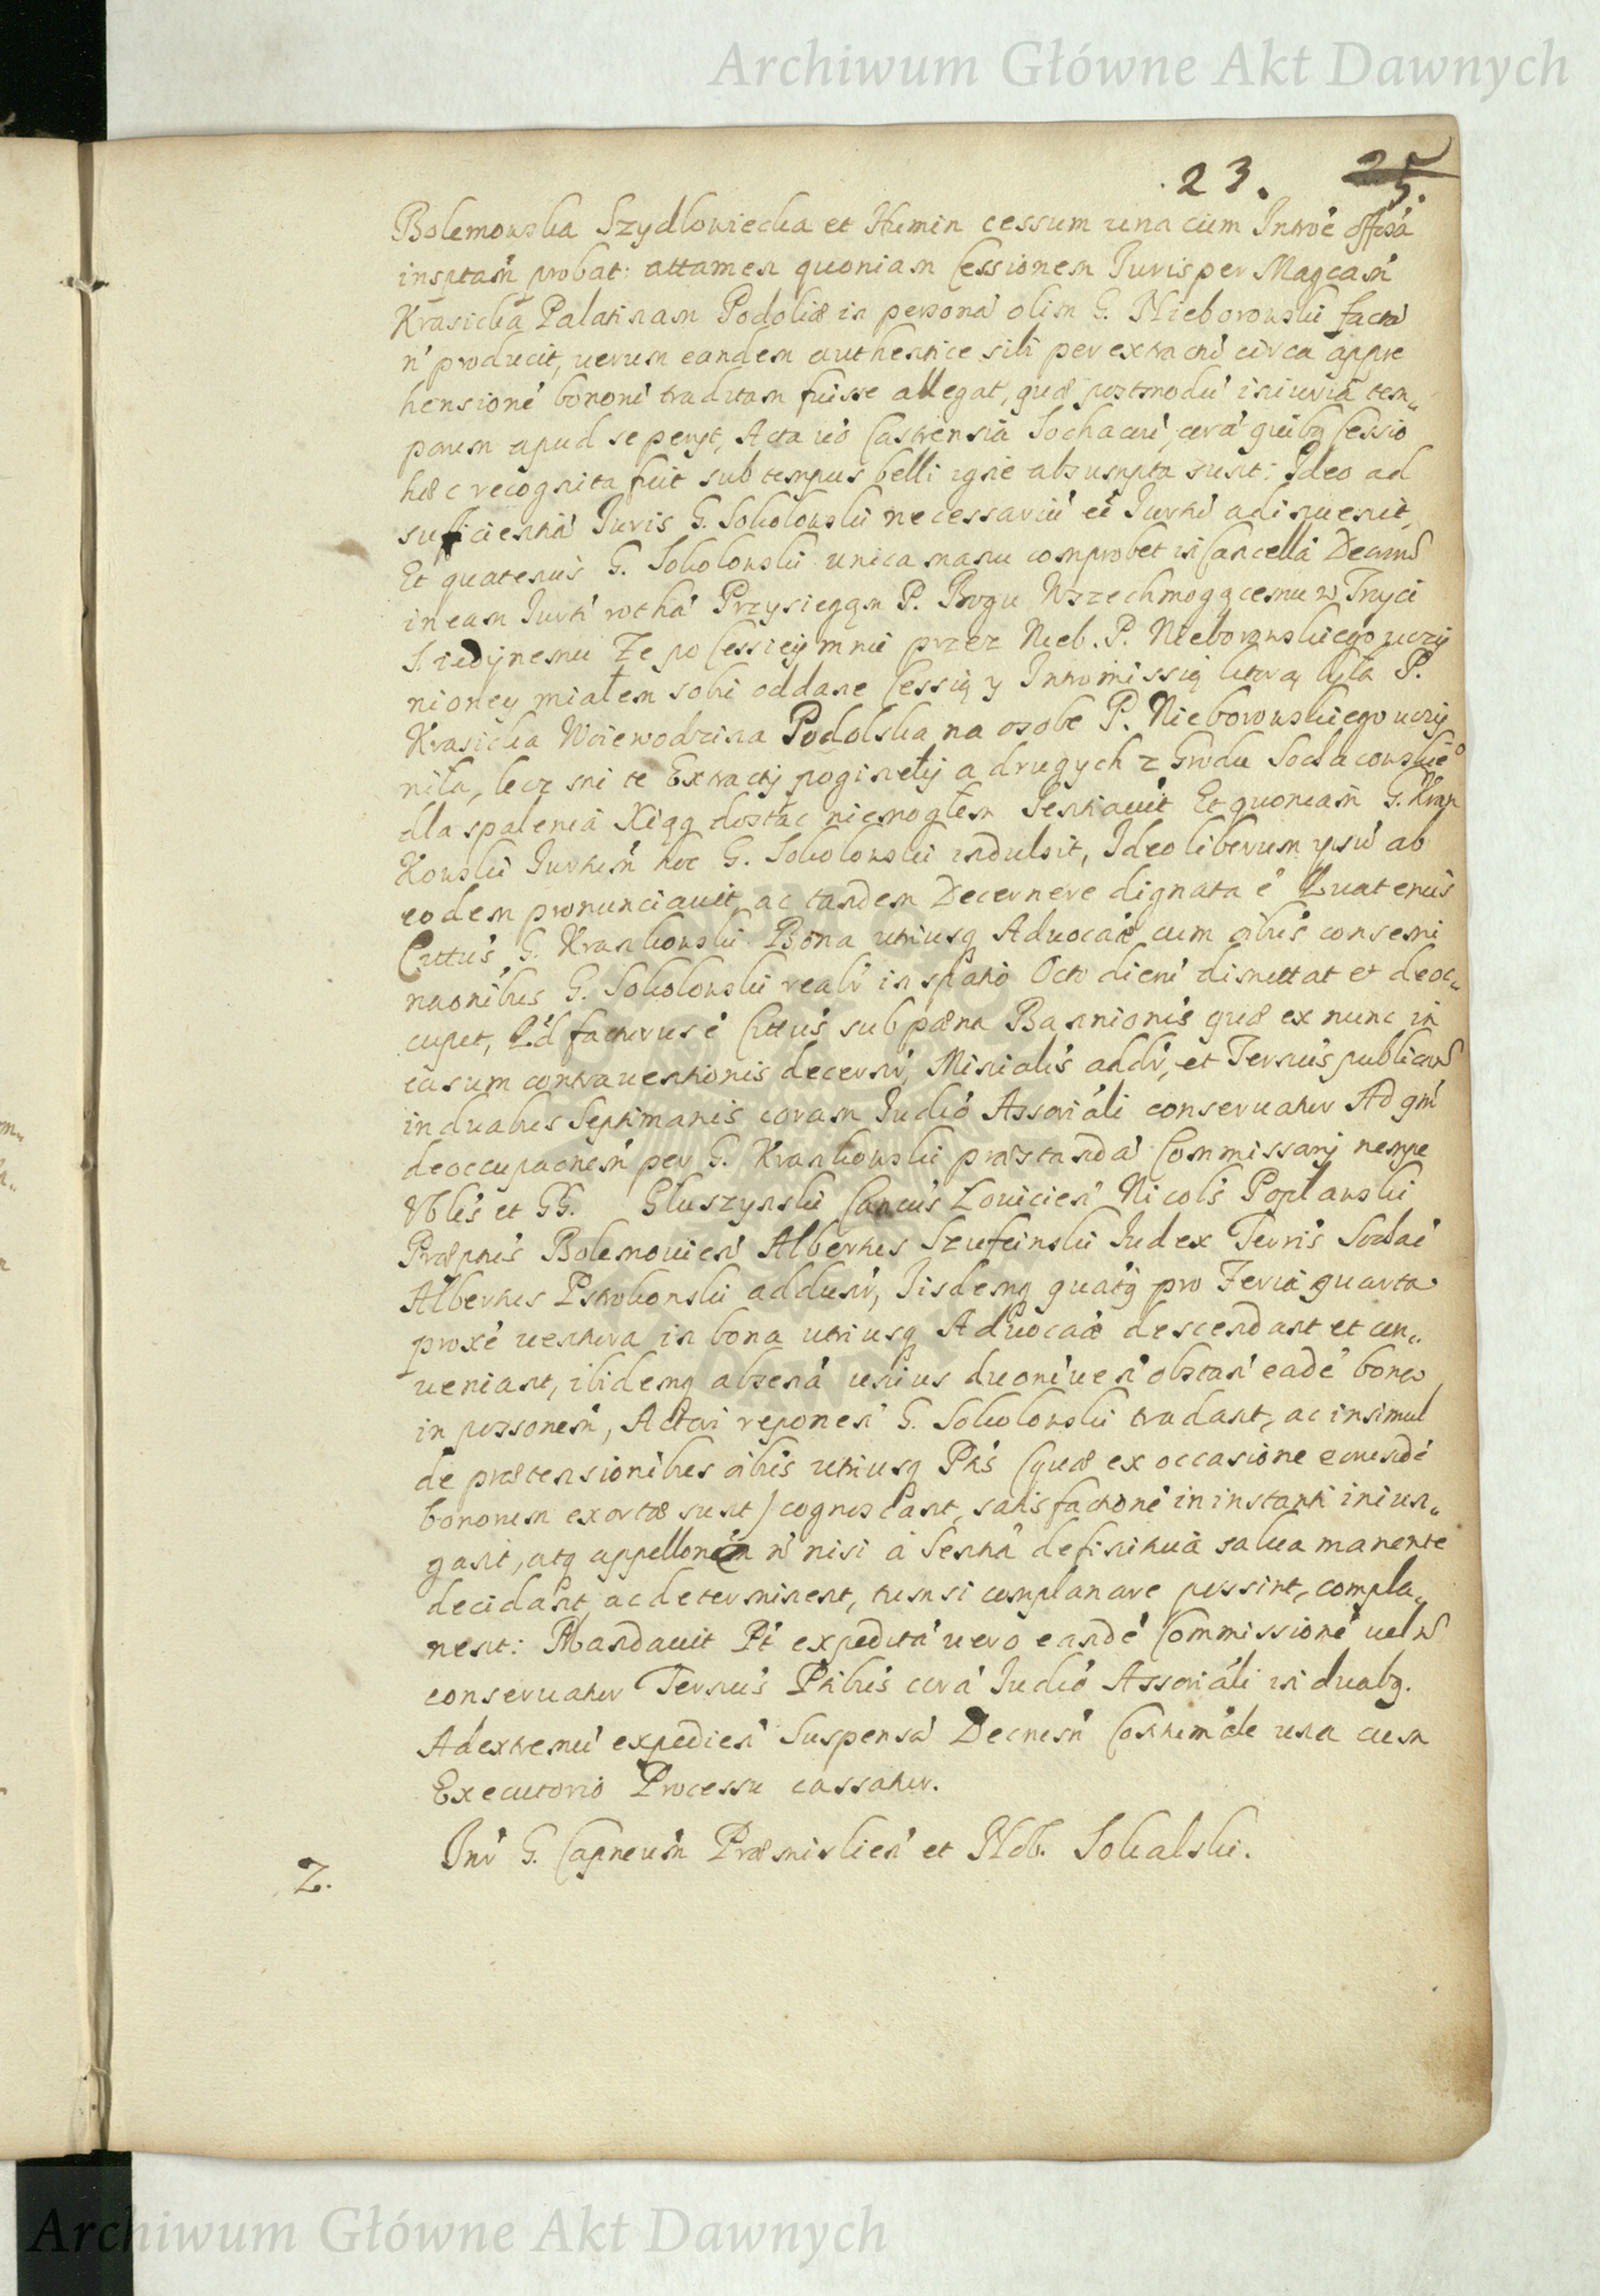 Archiwum Główne Akt Dawnych
23. 25.
Bolemowska Szydlowiecka et Humin cessum una cum Introe
insptam probat: attamen quoniam Cessionem Juris per Magcam
Krasicka Palatinam Podoliæ in persona olim G. Nieborowski facta
n̄ producit, uerum eandem authentice sibi per extractu circa appre
hensione bonoru traditam fuisse allegat, quæ postmodu iniuria tem„
porum apud se peryt, Acta uo Castrensia Sochaceu, cora quibq Cessio
hæc recognita fuit sub tempus belli igne absumpta sunt: Ideo ad
suficientia Juris G. Sokolowski necessariu ei Jurtu adinuenit,
Et quatenus G. Sokolowski unica manu comprobet in Cancella
in eam Jurti rotha Przysiegąm P. Bogu Wszechmogącemu w Tryci
S. iedynemu Ze po Cessiey mnie przez Nieb. P. Nieborowskiego uczy
nioney miałem sobi oddane Cessią y Intromissią ktorą była P.
Krasicka Woiewodzina Podolska na osobe P. Nieborowskiego uczy
niła, lecz mi te Extracty poginęły a drugych z Grodu Sochacowskie°
dla spalenia Xiąg dostac niemogłem Sentiauit Et quoniam G. Kran
Kowski Jurtum hoc G. Sokolowski indulsit, Ideo liberum ipsu ab
eodem pronunciauit, ac tandem Decernere dignata e Quatenus
Cittus G. Krankowski Bona utriusq Aduocaæ cum oibus
G. Sokolowski realr in spatio Octo dieru dimittat et deoc„
cupet, Qd facturus e Cittus sub pæna Bannionis quæ ex nunc in
casum contrauentionis decernr, Minialis addr, et Ternus
in duabus Septimanis coram Judio Assoriali conseruatur Ad qm
deoccupacnem per G. Krankowski præstanda Commissarij nempe
Nblis et GG. Gluszynski Loucien Nicols Poplawski
Præptus Bolemouien Albertus Szufcinski Judex Terris
Albertus Pstrokonski addunr, Iisdemq quatq pro Feria quarta
proxe uentura in bona utriusq Aduocaæ descendant et con„
ueniant, ibidemq absena unius duoru uen obstan eade bona
in possonem, Actori reponen G. Sokolowski tradant, ac insimul
de prætensionibus oibus utriusq Ptis (quæ ex occasione eorunde
bonorum exortæ sunt) cognoscant, satisfactione in instanti iniun„
gant, atq appellonem n̄ nisi a Senta definitiua salua manente
decidant ac determinent, tum si complanare possint, compla„
nent: Mandauit Pt expedita uero eande Commissione
conseruatur Ternus Ptibus cora Judio Assoriali in duabq.
Ad extremu expedien Suspensa Decnem una cum
Executorio Processu cassatur.
Z. Inr G. Capneum Præmislien et Nob. Sokalski.
Archiwum Główne Akt Dawnych